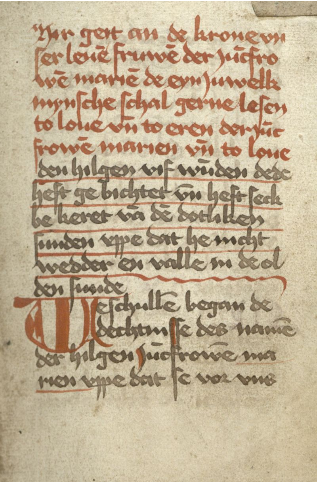 Hir geit an de krone vn
ser leuē fruwē der jūcfro
wē mariē de eyn juwelk
mynsche schal gerne lesen
to loue vn̄ to eren der jūc
frowē marien vn̄ to loue
den hilgen vif wūden dede
heft ge bichtet vn̄ heft seck
be keret vā dē dotliken
sunden vppe dat he nicht
wedder en valle in de ol
den sunde
We schullē began de
dechtnisse des namē
der hilgen jūcfrowē ma
rien vppe dat se vor vns